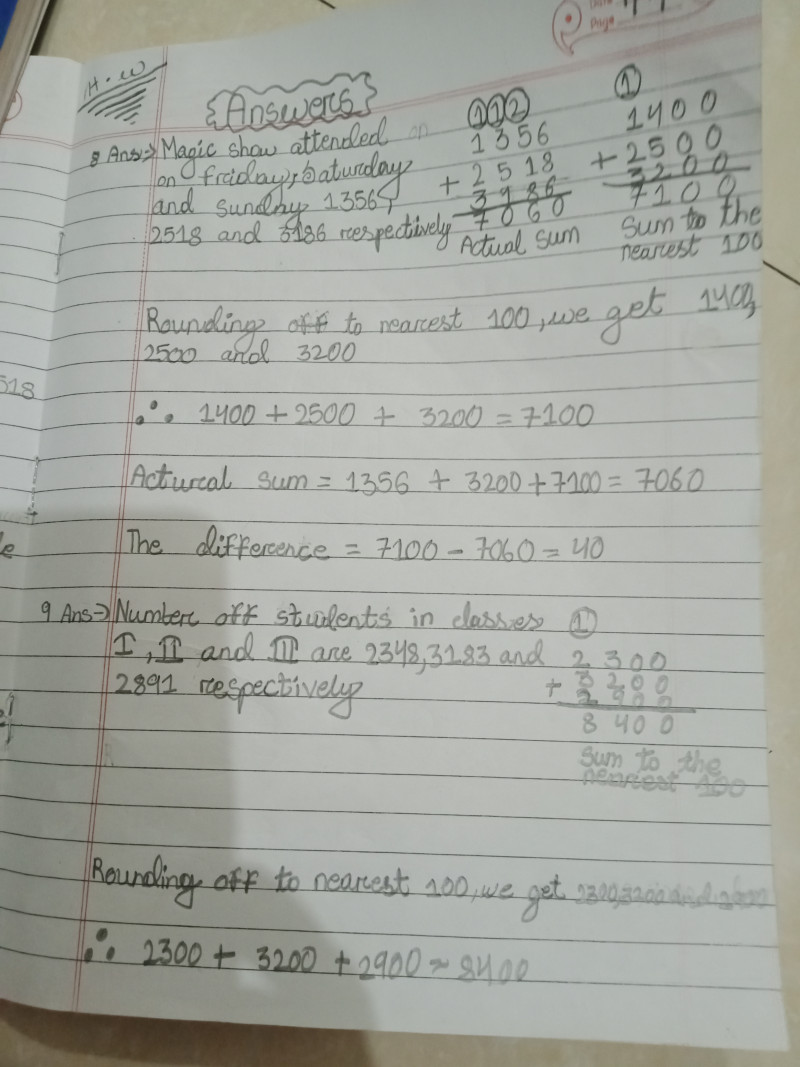 Page
H.W
Answers
8 Ans⇒ Magic show attended on
on friday, saturday
and sunday 1356,
2518 and 3186 respectively
①①②
1356
+ 2518
3186
7060
Actual sum
①
1400
+ 2500
3200
7100
Sum to the
nearest 100
Rounding off to nearest 100, we get 1400,
2500 and 3200
∴ 1400 + 2500 + 3200 = 7100
Acturcal sum = 1356 + 3200 + 7100 = 7060
The difference = 7100 - 7060 = 40
518
le
9 Ans⇒ Number off students in classes
I, II and III are 2348, 3183 and
2891 respectively
①
2300
+ 3200
2900
8400
Sum to the
nearest 100
Rounding off to nearest 100, we get 2300, 3200 and 2900
∴ 2300 + 3200 + 2900 = 8400